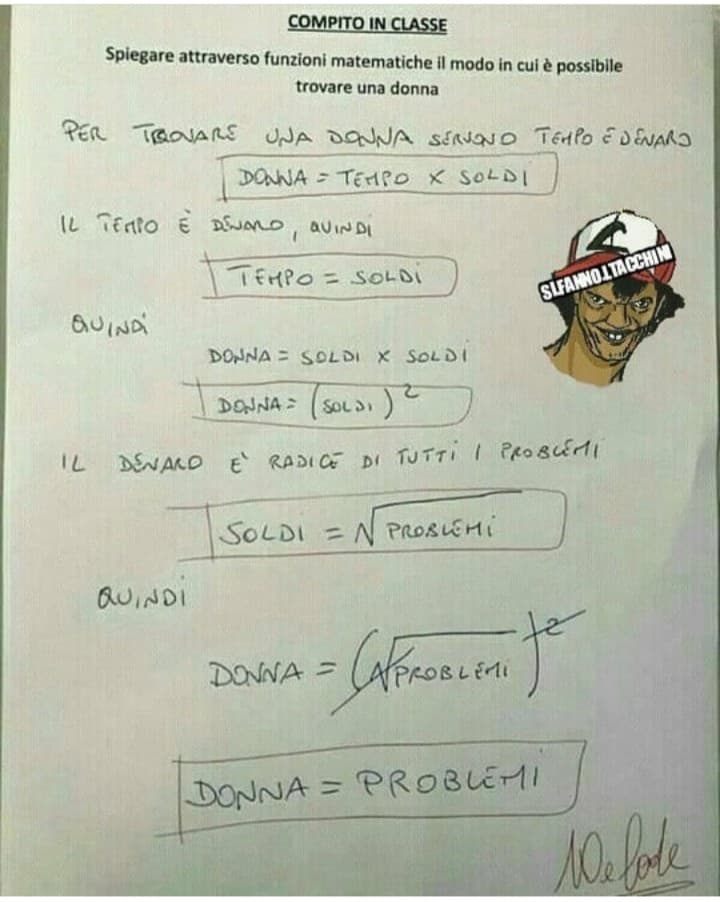 COMPITO IN CLASSE
Spiegare attraverso funzioni matematiche il modo in cui è possibile
trovare una donna
PER TROVARE UNA DONNA SERVONO TEMPO E DENARO
DONNA = TEMPO X SOLDI
IL TEMPO È DENARO, QUINDI
TEMPO = SOLDI
SI.FANNO.I.TACCHINI
QUINDI
DONNA = SOLDI X SOLDI
DONNA = (SOLDI)²
IL DENARO E' RADICE DI TUTTI I PROBLEMI
SOLDI = √PROBLEMI
QUINDI
DONNA = (√PROBLEMI)²
DONNA = PROBLEMI